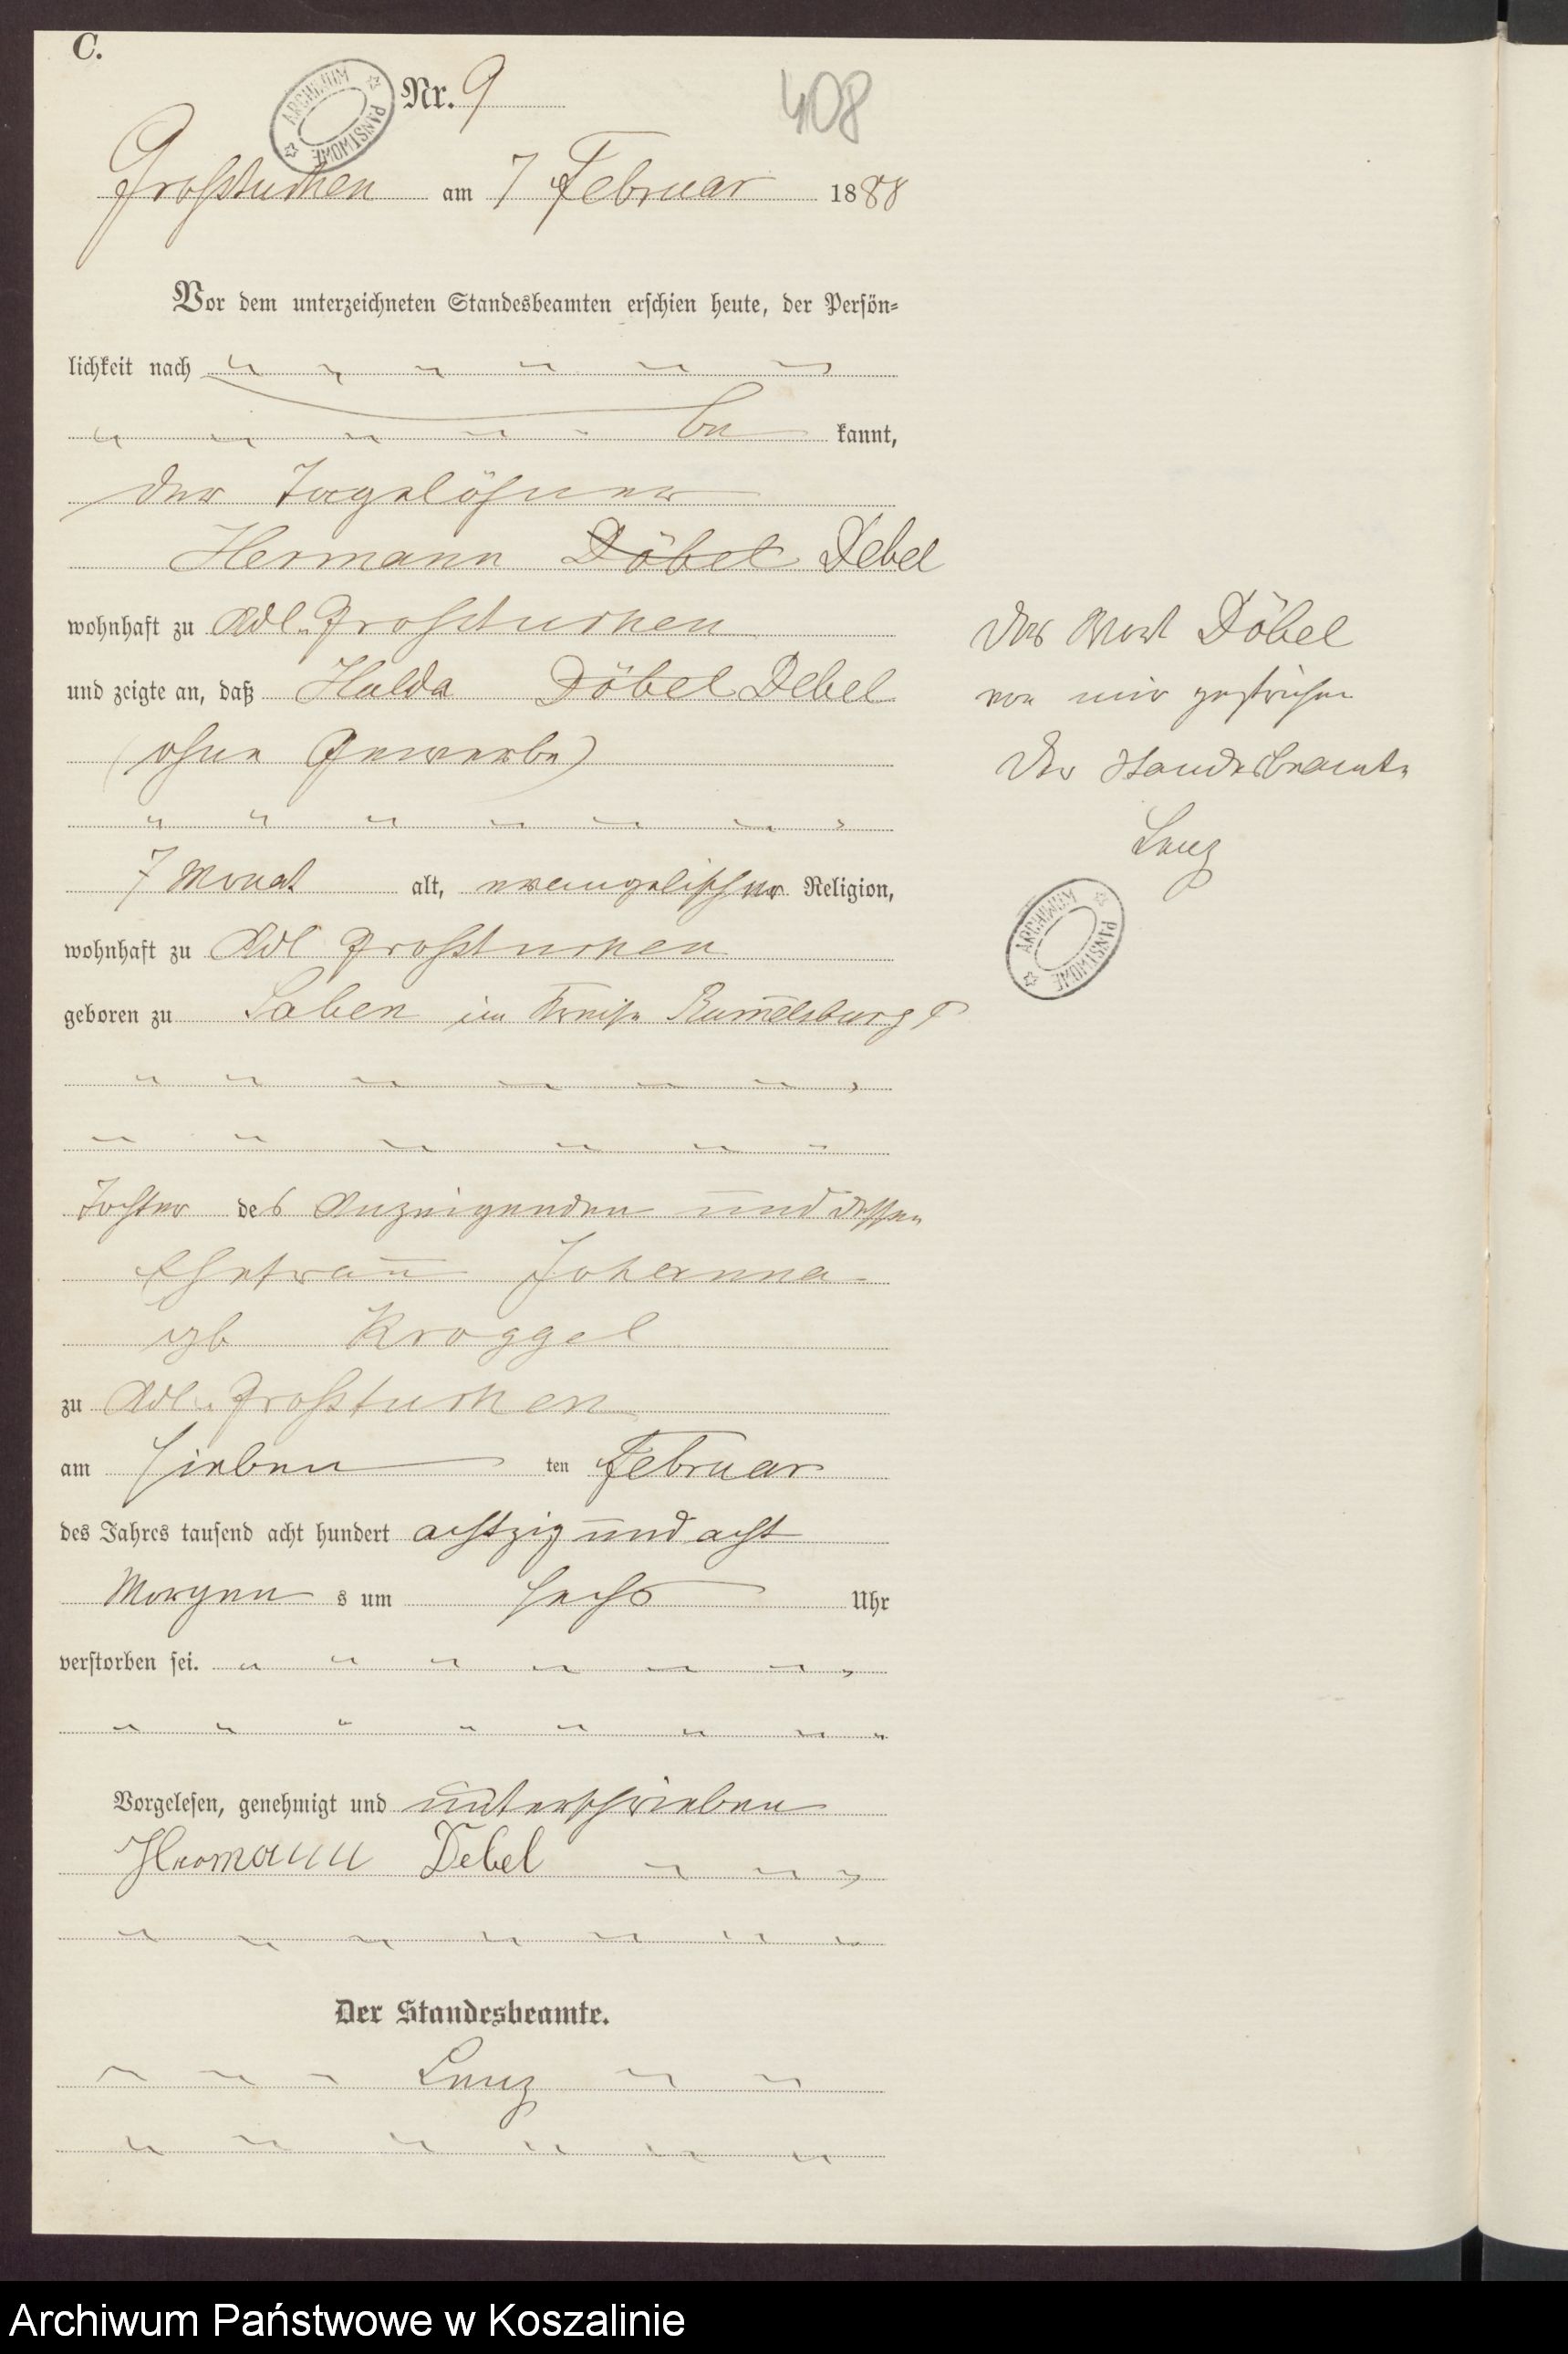 C.
ARCHIWUM PAŃSTWOWE
Nr. 9
408
Großtuchen am 7 Februar 1888
Vor dem unterzeichneten Standesbeamten erschien heute, der Persön=
lichkeit nach
be kannt,
der Tagelöhner
Hermann Döbel Debel
wohnhaft zu Adl. Großtuchen
und zeigte an, daß Hulda Döbel Debel
(ohne Gewerbe)
7 Monat alt, evangelischer Religion,
wohnhaft zu Adl Großtuchen
geboren zu Saben im Kreise Rummelsburg
Tochter des Anzeigenden und dessen
Ehefrau Johanna
geb Kroggel
zu Adl. Großtuchen
am sieben ten Februar
des Jahres tausend acht hundert achtzig und acht
Morgen s um sechs Uhr
verstorben sei.
Vorgelesen, genehmigt und unterschrieben
Hermann Debel
Der Standesbeamte.
Lenz
Das Wort Döbel
von mir gestrichen
Der Standesbeamte
Lenz
ARCHIWUM PAŃSTWOWE
Archiwum Państwowe w Koszalinie